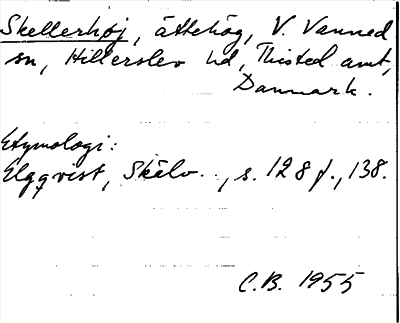 Skellerhøj, ättehög, V. Vanned
sn, Hillerslev hd, Thisted amt,
Danmark.
Etymologi:
Elgqvist, Skälv.., s. 128 f., 138.
C.B. 1955